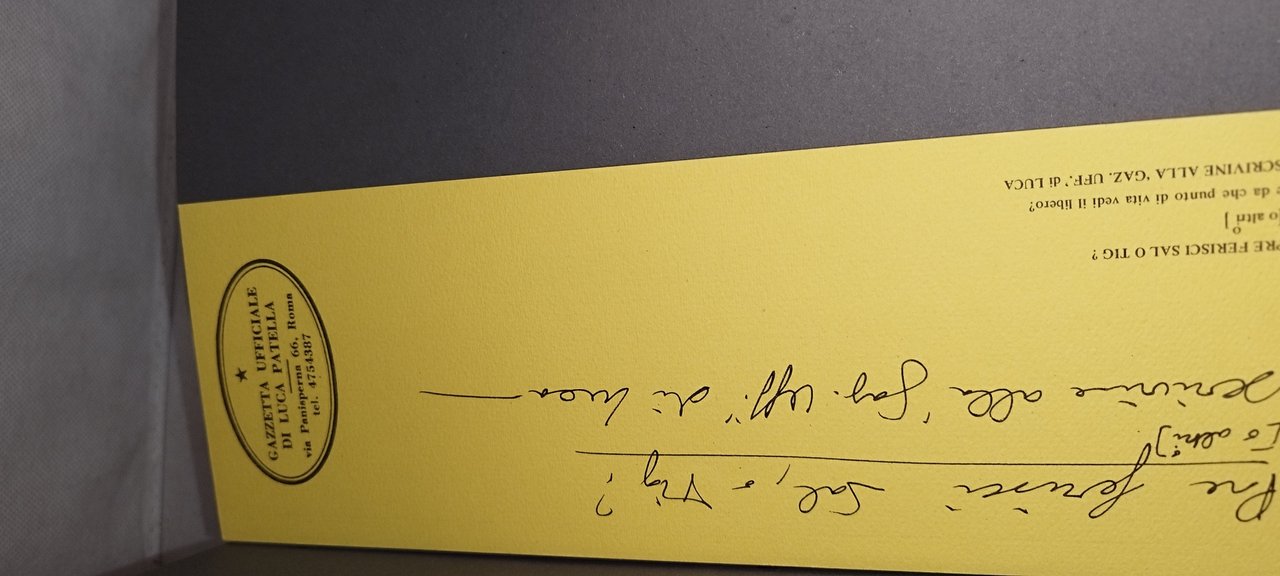 Pre ferisci Sal, o Tig?
[o altri o]
Scrivine alla 'Gaz. Uff.' di Luca
PRE FERISCI SAL O TIG ?
[o altri o]
e da che punto di vita vedi il libero?
SCRIVINE ALLA 'GAZ. UFF.' di LUCA
★
GAZZETTA UFFICIALE
DI LUCA PATELLA
via Panisperna 66, Roma
tel. 4754387